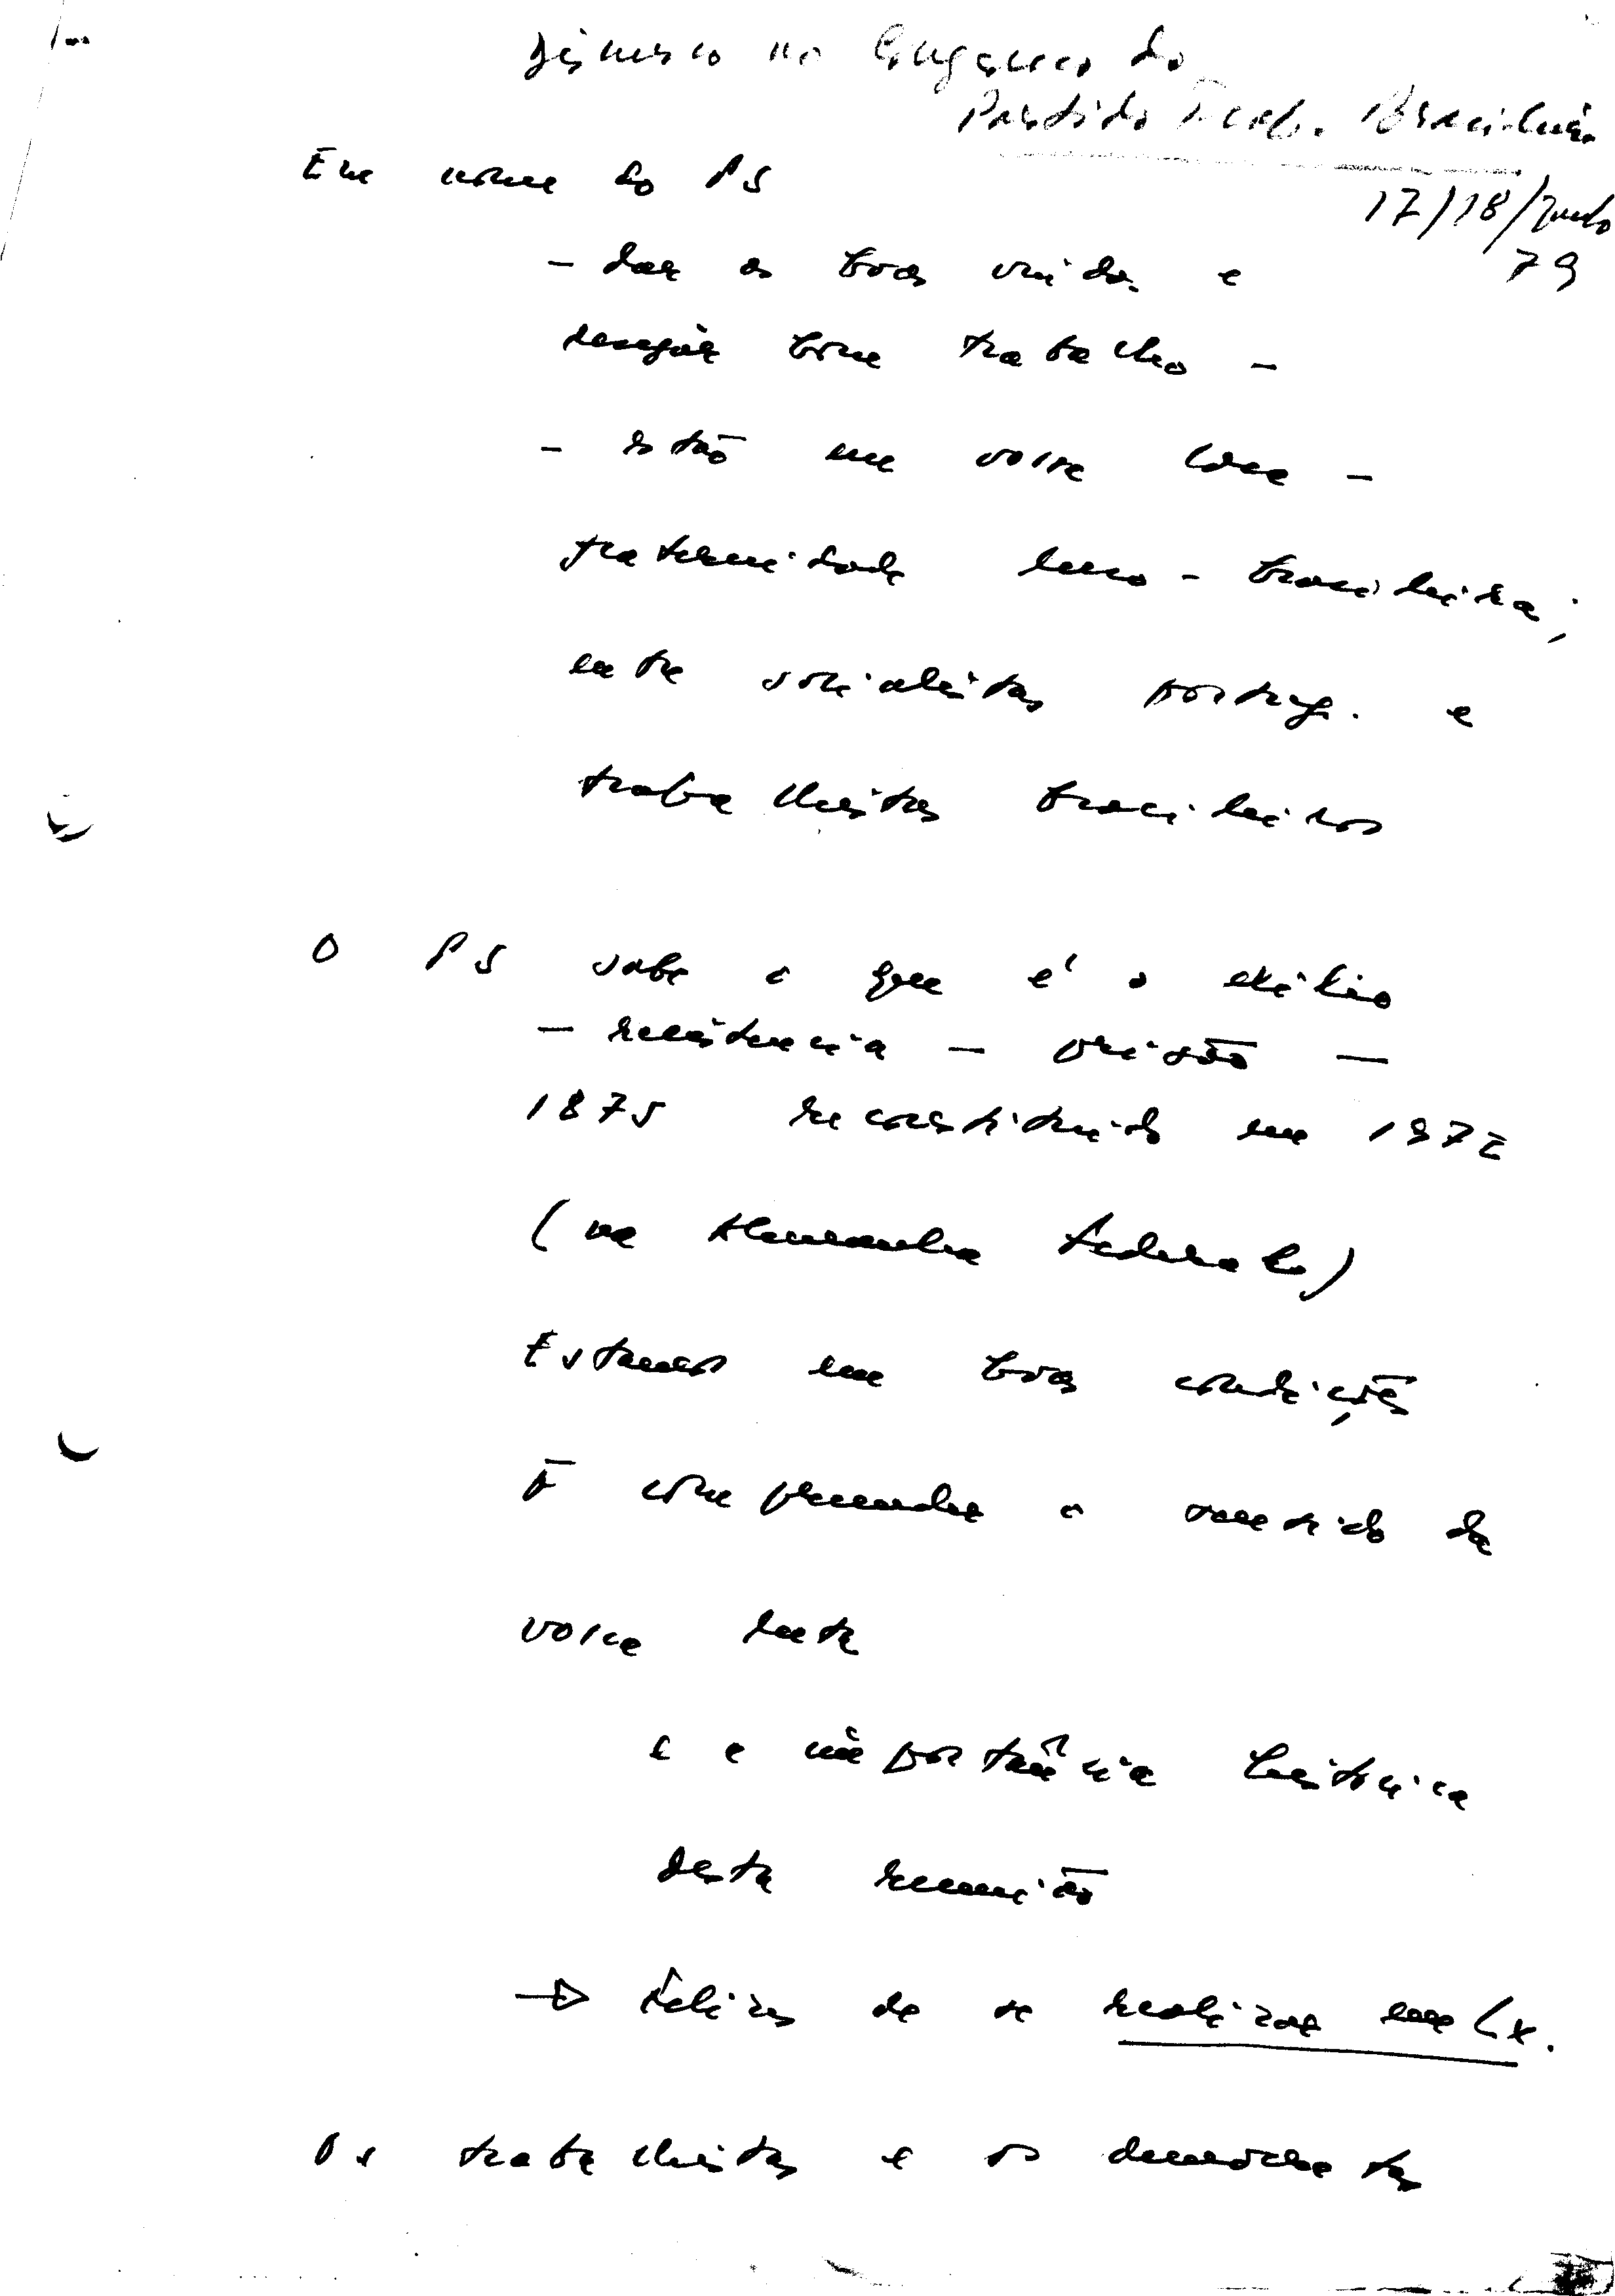 Discurso no Congresso do
Partido Trab. Brasileiro
17/18/Junho
79
Em nome do PS
– dar as boas vindas e
desejar bom trabalho –
– estão em vossa casa –
fraternidade luso-brasileira,
entre socialistas portug. e
trabalhistas brasileiros
O PS sabe o que é o exílio
– resistencia – prisão –
1875 reconstituido em 1972
(na Alemanha Federal)
Estamos em boas condições
P compreender o sentido da
vossa luta
e a importância historica
desta reunião
→ Felizes de se realizar em Lx.
Os trabalhistas e os democratas